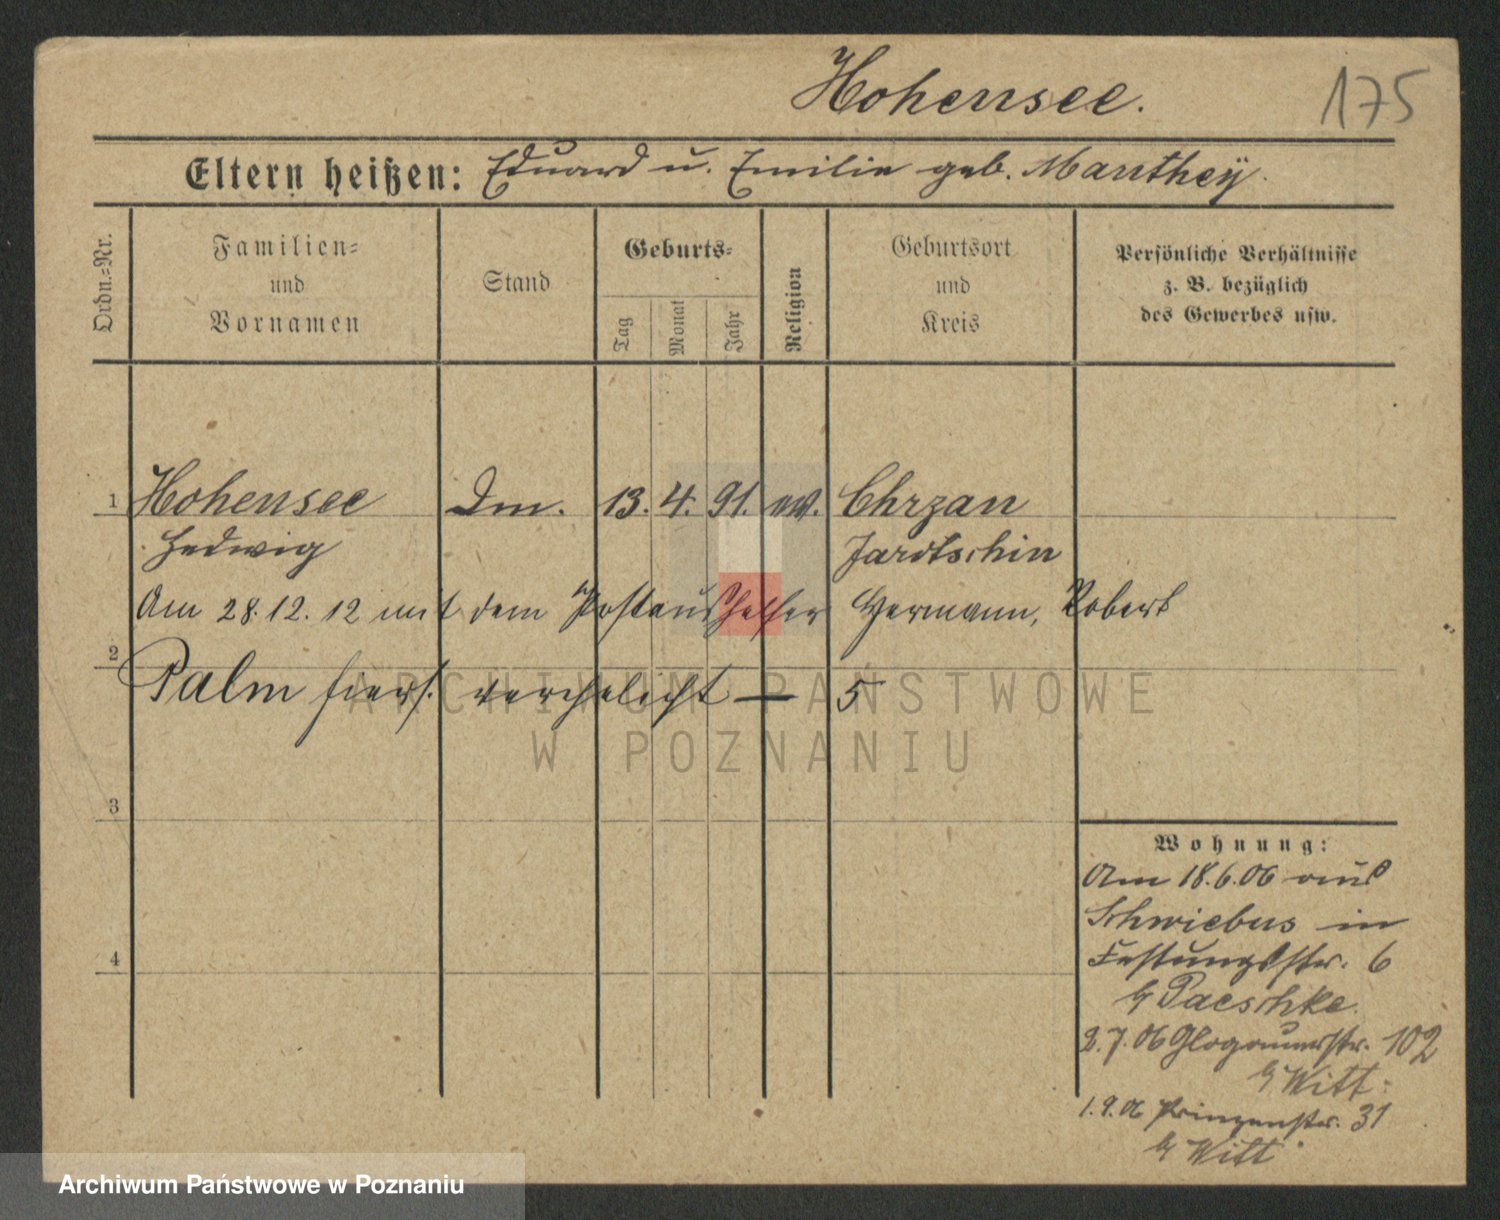 Hohensee.
175
Eltern heißen: Eduard u. Emilie geb. Manthey.
Ordn.-Nr.
Familien-
und
Vornamen
Stand
Geburts-
Tag
Monat
Jahr
Religion
Geburtsort
und
Kreis
Persönliche Verhältnisse
z. B. bezüglich
des Gewerbes usw.
1 Hohensee Dm. 13. 4. 91. ev. Chrzan
Hedwig Jarotschin
Am 28.12.12 mit dem Postaushelfer Hermann, Robert
2
Palm hiers. verehelicht — 5
ARCHIWUM PAŃSTWOWE
W POZNANIU
3
4
Wohnung:
Am 18.6.06 aus
Schwiebus in
Festungsstr. 6
b/ Paeschke.
2.7.06 Glogauerstr. 102
b/ Witt.
1.9.06 Prinzenstr. 31
b/ Witt
Archiwum Państwowe w Poznaniu